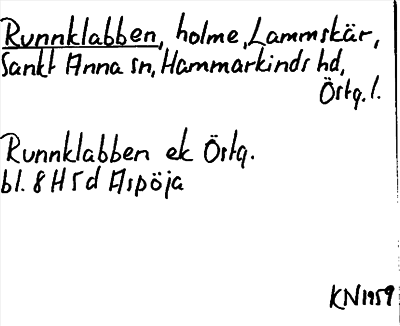 Runnklabben, holme, Lammskär,
Sankt Anna sn, Hammarkinds hd,
Östg. l.
Runnklabben ek Östg.
bl. 8 H 5 d Aspöja
KN 1959